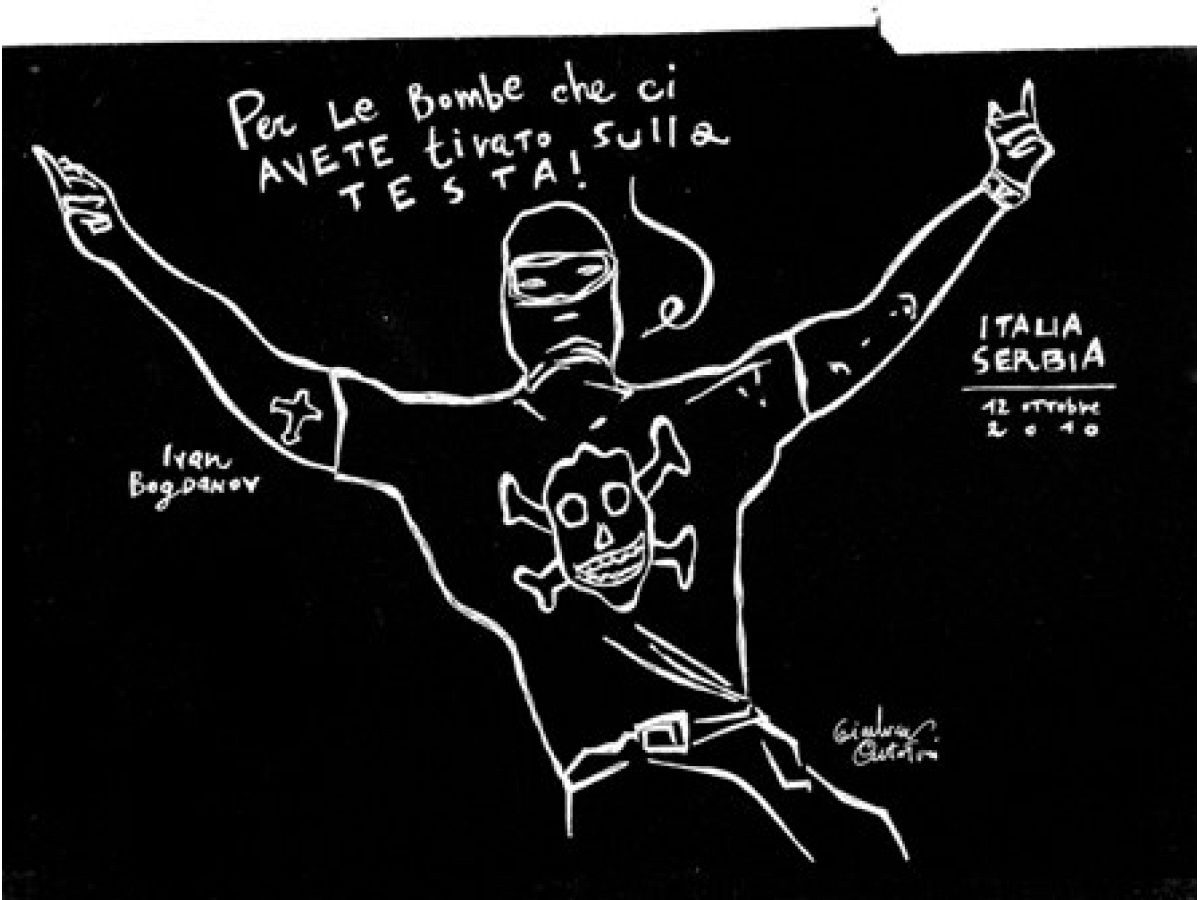 Per Le Bombe che ci
AVETE tirato sulla
TESTA!
ITALIA
SERBIA
12 ottobre
2010
Ivan
Bogdanov